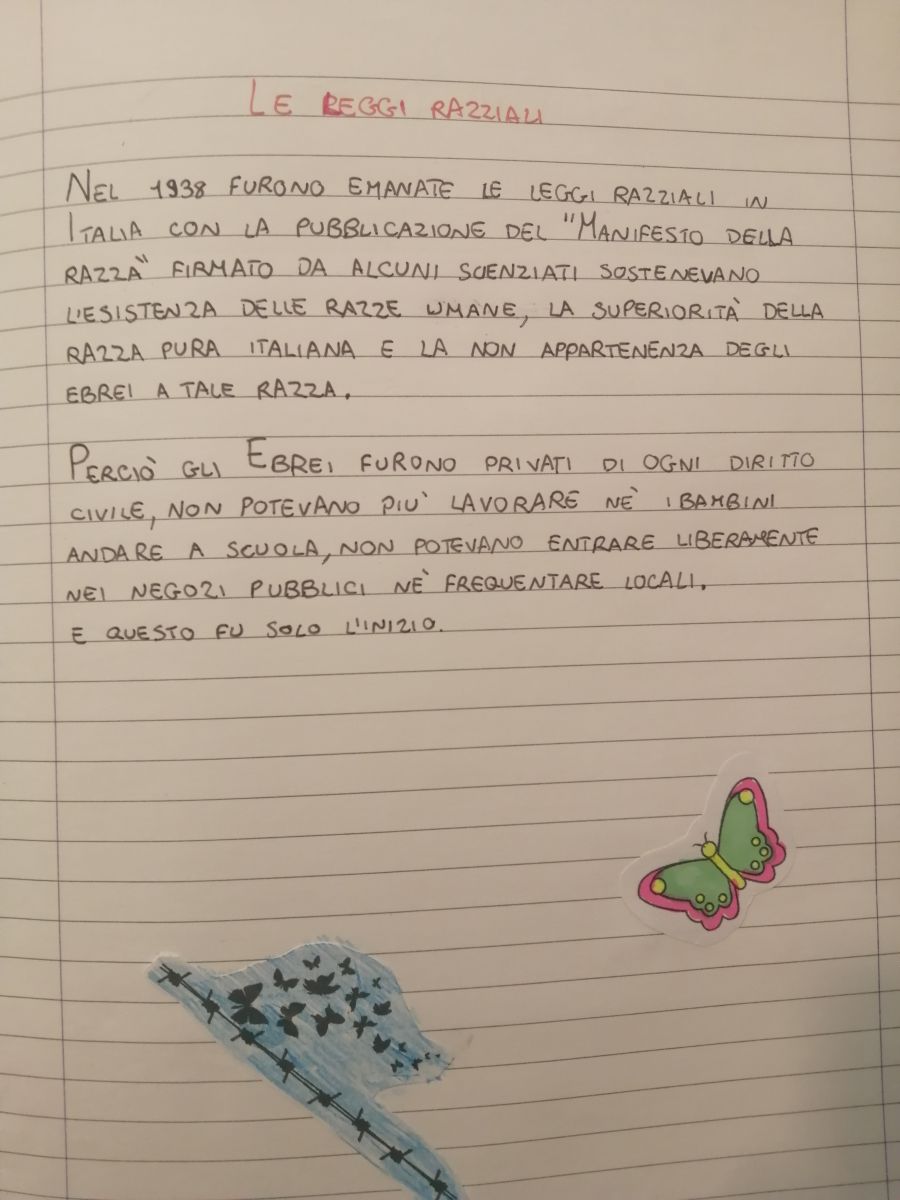 LE LEGGI RAZZIALI
NEL 1938 FURONO EMANATE LE LEGGI RAZZIALI IN
ITALIA CON LA PUBBLICAZIONE DEL "MANIFESTO DELLA
RAZZA" FIRMATO DA ALCUNI SCIENZIATI SOSTENEVANO
L'ESISTENZA DELLE RAZZE UMANE, LA SUPERIORITÀ DELLA
RAZZA PURA ITALIANA E LA NON APPARTENENZA DEGLI
EBREI A TALE RAZZA.
PERCIÒ GLI EBREI FURONO PRIVATI DI OGNI DIRITTO
CIVILE, NON POTEVANO PIU' LAVORARE NÈ I BAMBINI
ANDARE A SCUOLA, NON POTEVANO ENTRARE LIBERAMENTE
NEI NEGOZI PUBBLICI NÈ FREQUENTARE LOCALI.
E QUESTO FU SOLO L'INIZIO.